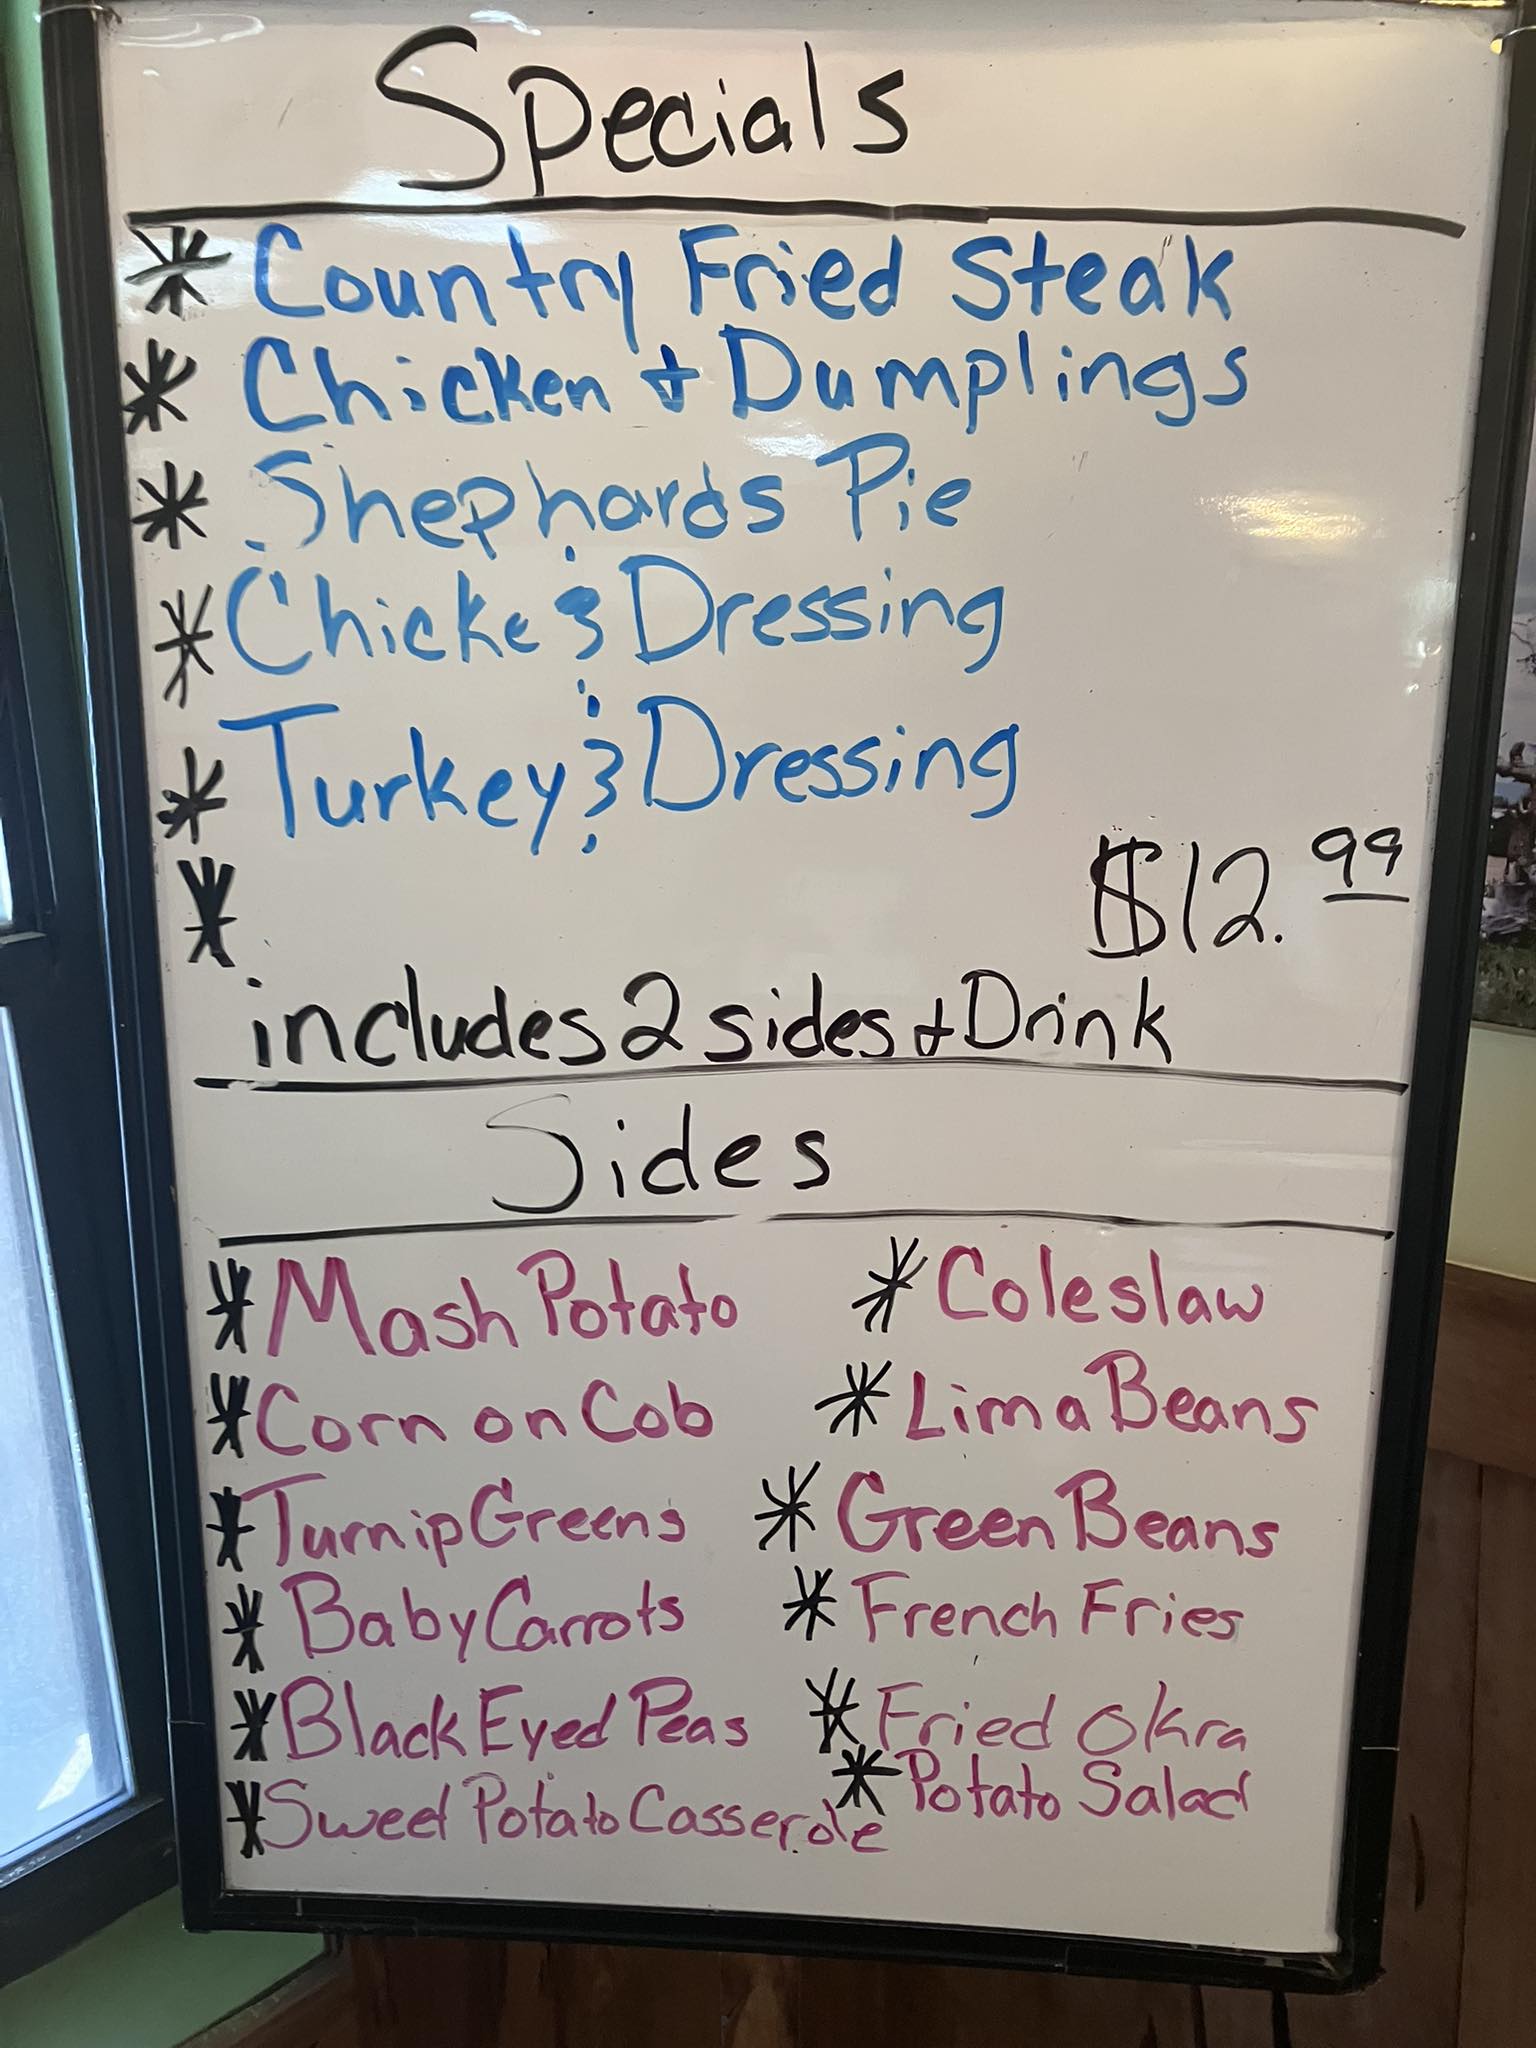 Specials
* Country Fried Steak
* Chicken + Dumplings
* Shephards Pie
* Chicke & Dressing
* Turkey & Dressing
*
$12.99
includes 2 sides + Drink
Sides
* Mash Potato
* Coleslaw
* Corn on Cob
* Lima Beans
* Turnip Greens
* Green Beans
* Baby Carrots
* French Fries
* Black Eyed Peas
* Fried Okra
* Sweet Potato Casserole
* Potato Salad